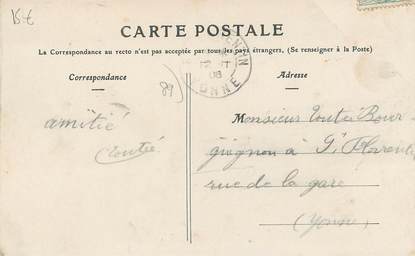 15 €
CARTE POSTALE
La Correspondance au recto n'est pas acceptée par tous les pays étrangers, (Se renseigner à la Poste)
Correspondance
Adresse
08
YONNE
89
amitié
Toutée
Monsieur Toutée Bour-
guignon à St Florentin
rue de la gare
(Yonne)